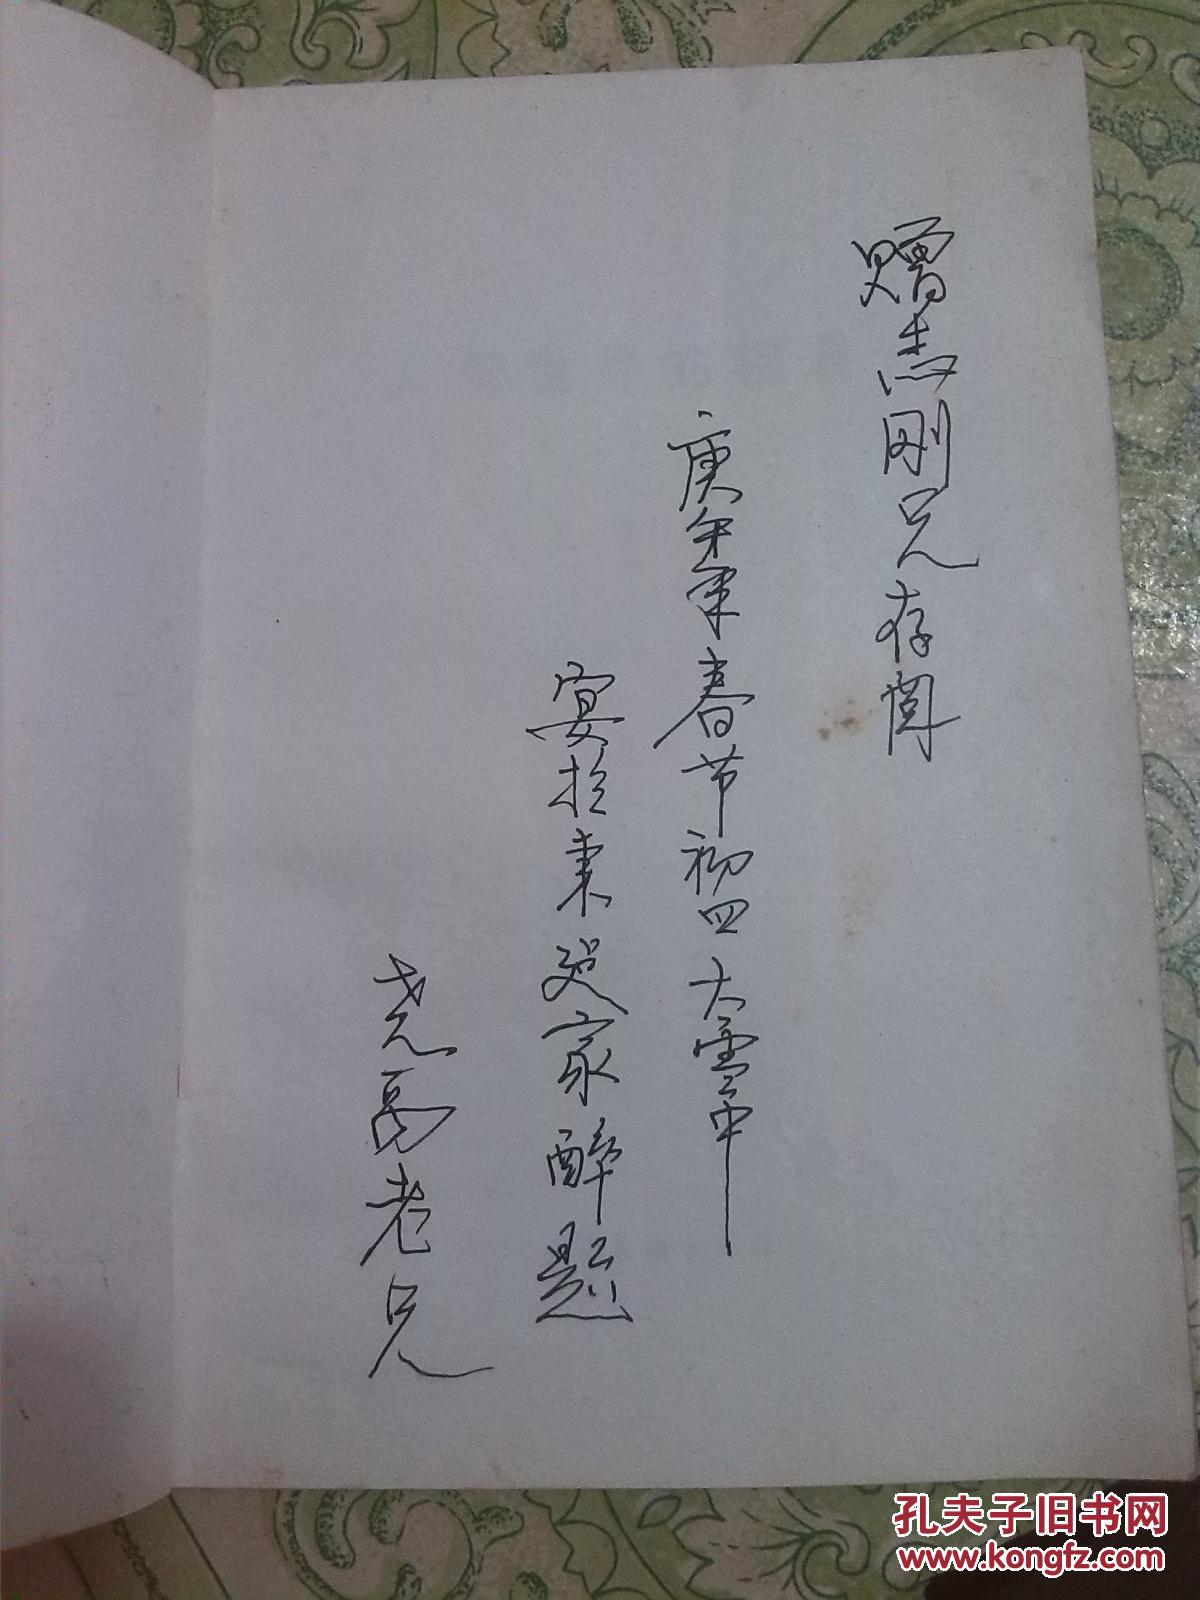 赠志刚兄存阅
庚午年春节初四大雪中
宴於家醉题
尧老兄
孔夫子旧书网
www.kongfz.com